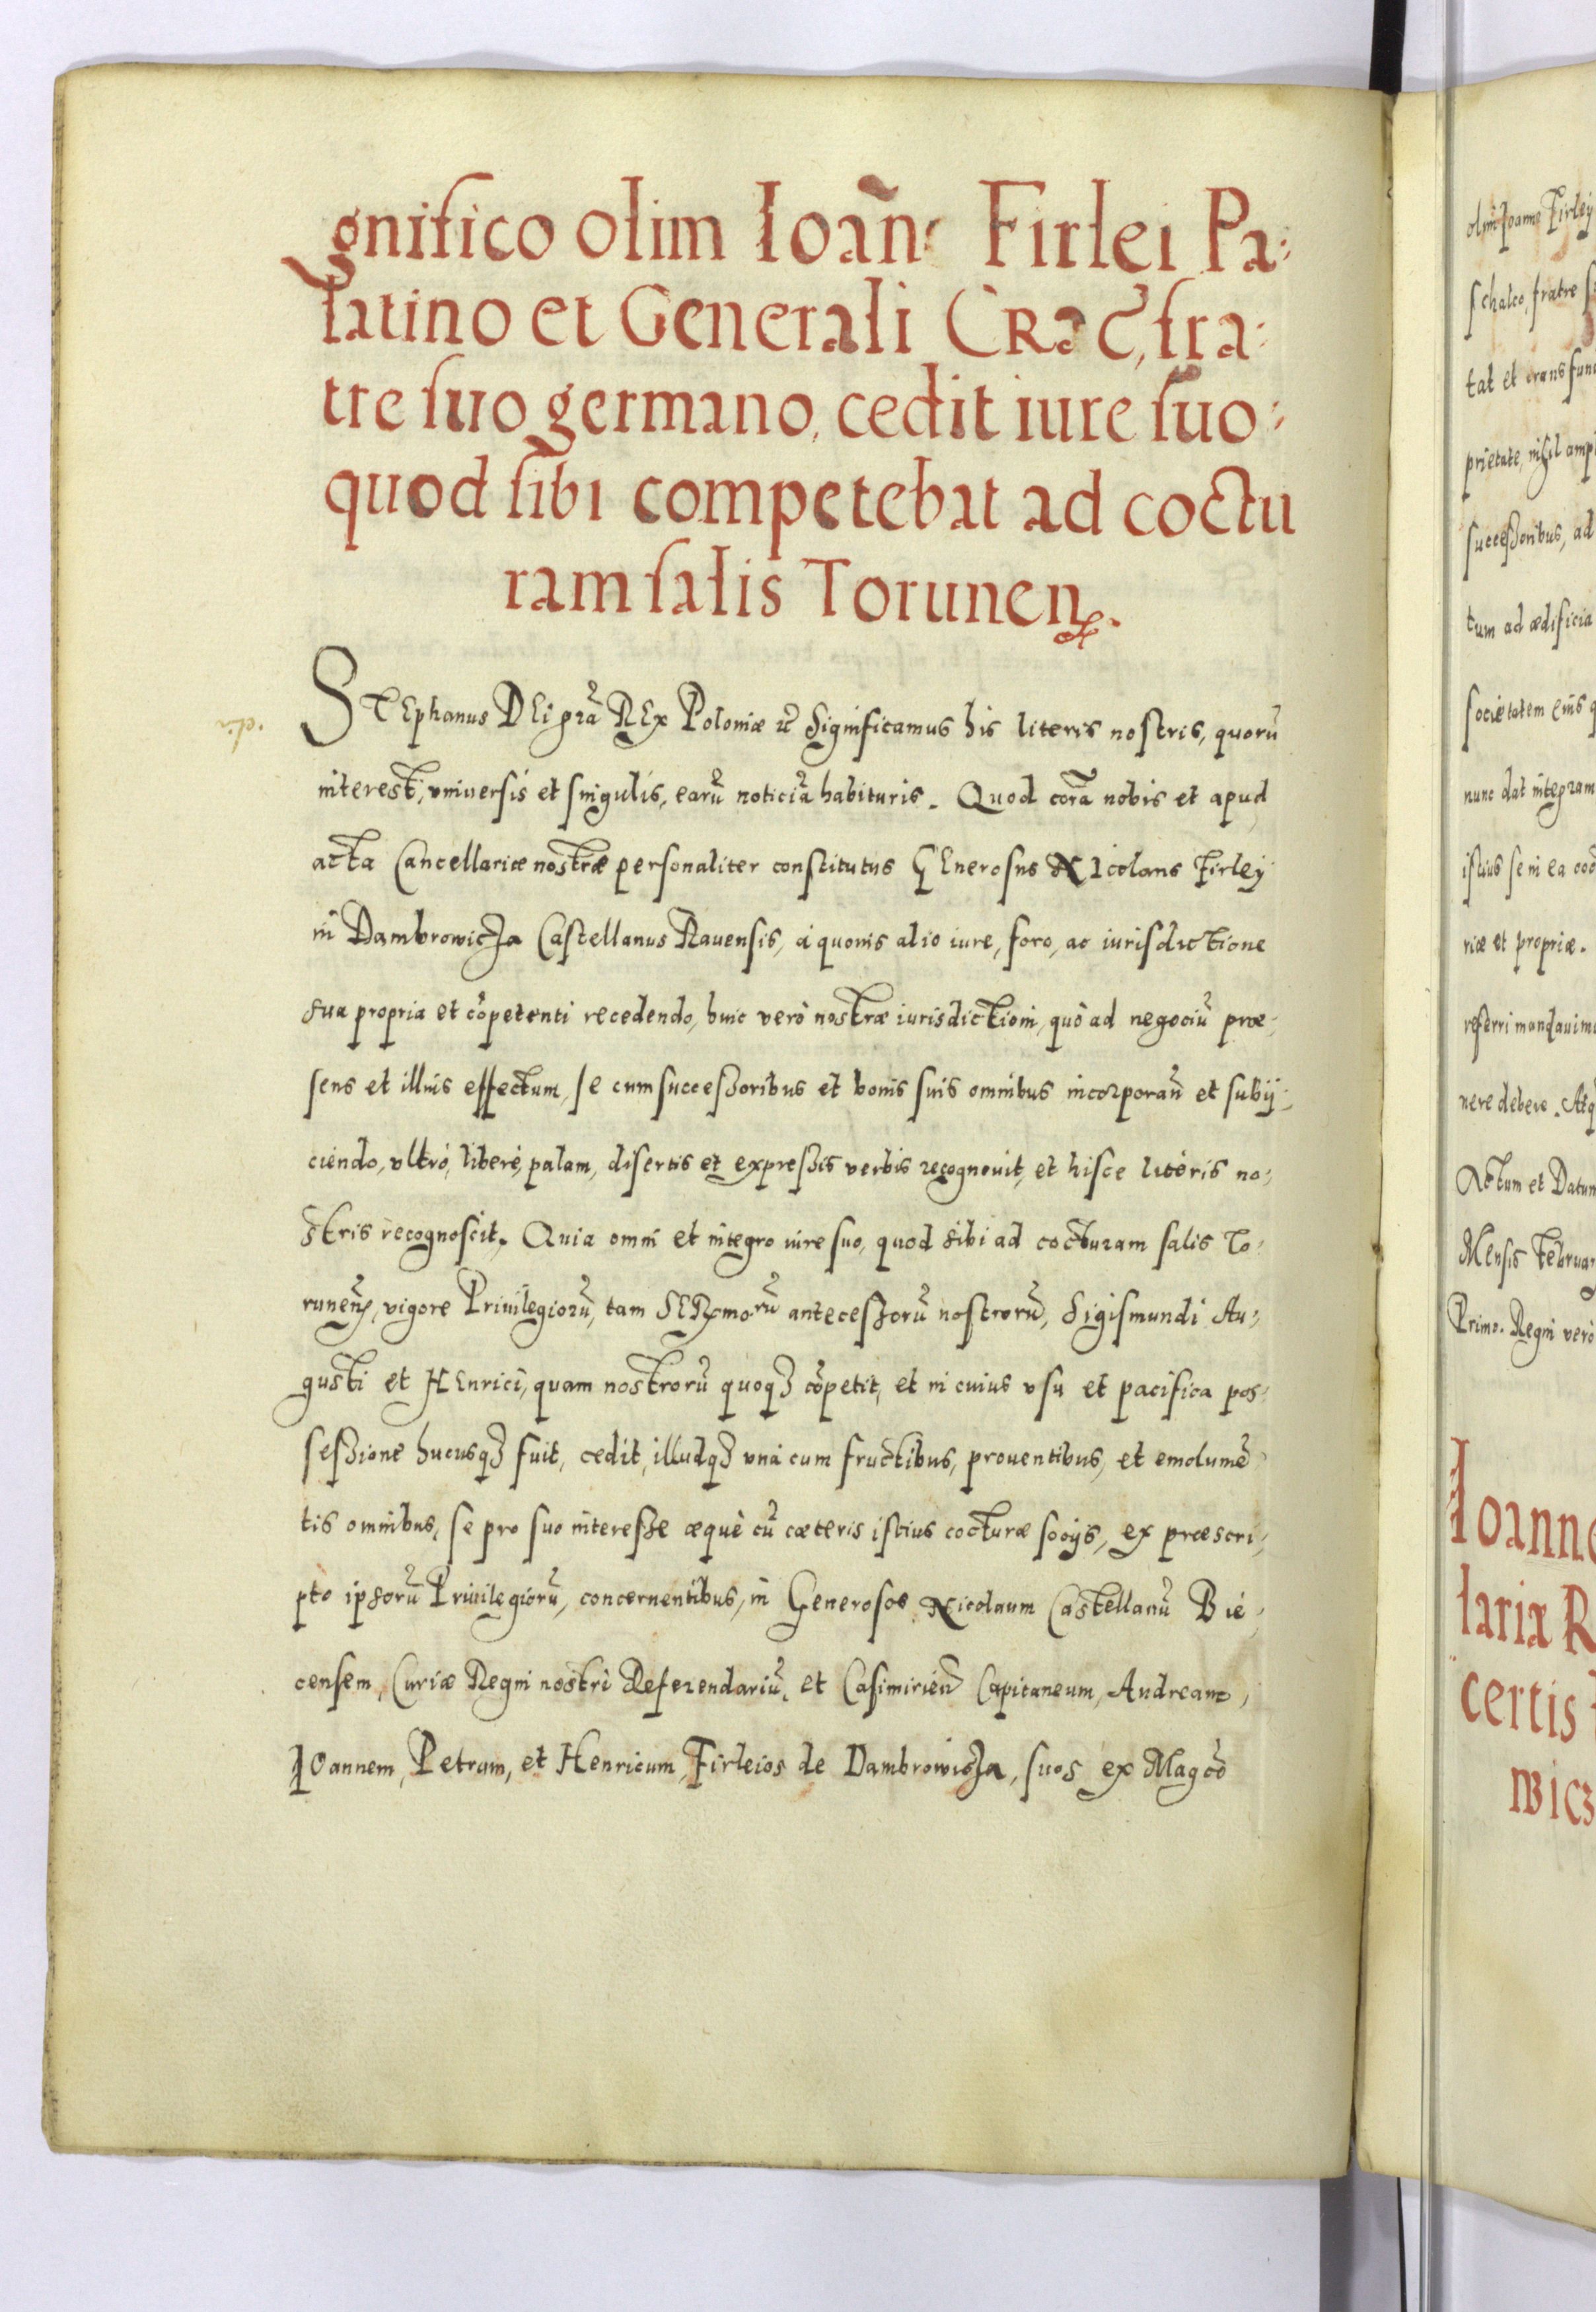 gnifico olim Ioañe Firlei Pa-
latino et Generali Crac, fra-
tre suo germano, cedit iure suo
quod sibi competebat ad coctu
ram salis Torunen.
STEphanus DEi grã REx Poloniæ etc̃ Significamus his literis nostris, quorũ
interest, vniversis et singulis, earũ noticiã habituris. Quod corã nobis et apud
acta Cancellariæ nostræ personaliter constitutus GEnerosus NIcolaus Firley
in Dambrowicza Castellanus Rauensis, à quouis alio iure, foro, ac iurisdictione
sua propria et cõpetenti recedendo, huic verò nostræ iurisdictioni, quò ad negociũ præ-
sens et illius effectum, se cum successoribus et bonis suis omnibus incorporañ et subij-
ciendo, vltrò, liberè, palam, disertis et expressis verbis recognouit, et hisce literis no-
stris recognoscit. Quia omni et integro iure suo, quod sibi ad cocturam salis To-
runeñ, vigore Priuilegiorũ, tam SERxmorũ antecessorũ nostrorũ, Sigismundi Au-
gusti et HEnrici, quam nostrorũ quoqȝ cõpetit, et in cuius vsu et pacifica pos-
sessione hucusqȝ fuit, cedit, illudqȝ vnà cum fructibus, prouentibus, et emolumẽ
tis omnibus, se pro suo interesse æquè cũ cæteris istius cocturæ socijs, ex præscri-
pto ipsorũ Priuilegiorũ, concernentibus, in Generosos Nicolaum Castellanũ Bie-
censem, Curiæ Regni nostri Referendariũ, et Casimirień Capitaneum, Andream,
IOannem, Petrum, et Henricum, Firleios de Dambrowicza, suos ex Magcõ
olim Ioanne Firley
schalco, fratre
tat et transfun
prietate, nihil
successoribus, ad
tum ad ædificia
societatem eius
nunc dat integram
istius se in ea
riæ et propriæ.
referri mandauimus
nere debere. Atq
Actum et Datum
Mensis Februar
Primo. Regni verò
Ioanne
lariæ R
certis
wicz